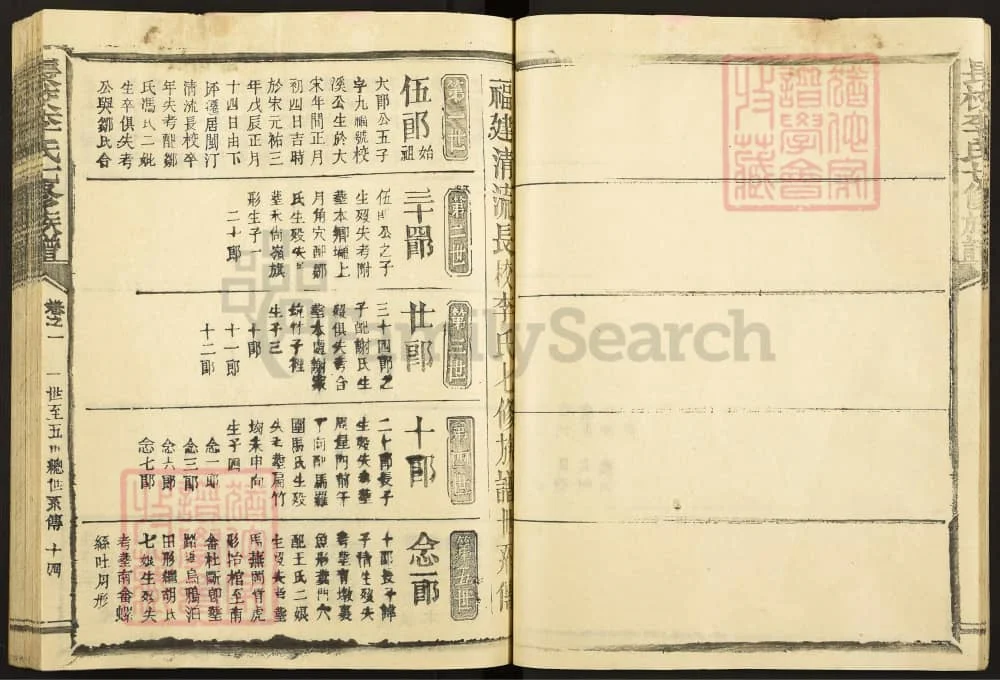 福建清流長校李氏七修族譜世系傳
第一世
伍郎始祖
大郎公五子
字九福號校
溪公生於大
宋年間正月
初四日吉時
於宋元祐三
年戊辰正月
十四日由下
坪遷居閩汀
清流長校卒
年失考配鄒
氏馮氏二妣
生卒俱失考
公與鄒氏合
第二世
三十四郎
伍郎公之子
生歿失考附
塟本鄉壩上
月角穴配鄒
氏生歿失
塟未尚嶺旗
形生子一
二十郎
第三世
廿郎
三十四郎之
子配謝氏生
歿俱失考合
塟本處謝家
坑竹子
生子三
十郎
十一郎
十二郎
第四世
十郎
二十郎長子
生歿失考塟
屋門前
丁向配馬羅
圍賜氏生歿
失考塟扁竹
坳未申向
生子四
念一郎
念三郎
念六郎
念七郎
第五世
念一郎
十郎長子諱
子情生歿失
考塟墩裏
魚形囊門穴
配王氏二娘
生歿失考塟
馬燕岡背虎
形抬棺至南
畲杜斷即塟
路烏鴉泊
田形繼胡氏
七娘生歿失
考塟南畲螺
絲吐肉形
長校李氏七修族譜
卷之一
一世至五世總世系傳
十四
長校李氏七修族譜
FamilySearch
譜學會
收藏
譜學會
收藏